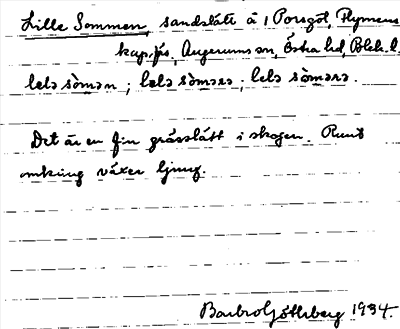 Lille Sommen, sandslätt å 1 Porsgöl, Flymens
kap.förs, Augerums sn, Östra hd, Blek. l.
lɛlə sòmən ; lɛlə sòmərə ; lɛlə sòmərə.
Det är en fin grässlätt i skogen. Runt
omkring växer ljung.
Barbro Götherberg 1934.